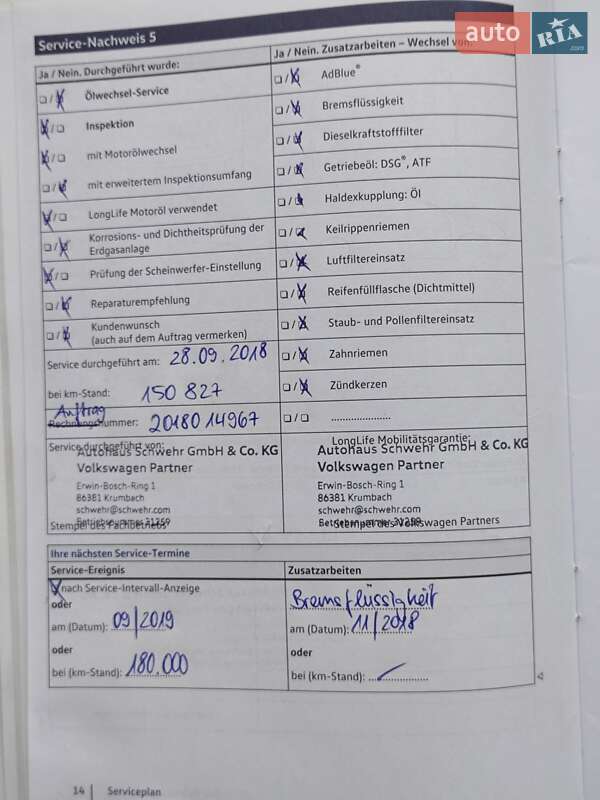 auto RIA .com
Service-Nachweis 5
Ja / Nein. Durchgeführt wurde:
❑ / ❑ Ölwechsel-Service
❑ / ❑ Inspektion
❑ / ❑ mit Motorölwechsel
❑ / ❑ mit erweitertem Inspektionsumfang
❑ / ❑ LongLife Motoröl verwendet
❑ / ❑ Korrosions- und Dichtheitsprüfung der
Erdgasanlage
❑ / ❑ Prüfung der Scheinwerfer-Einstellung
❑ / ❑ Reparaturempfehlung
❑ / ❑ Kundenwunsch
(auch auf dem Auftrag vermerken)
Service durchgeführt am: 28.09.2018
bei km-Stand: 150 827
Auftrag
Rechnungsnummer: 2018014967
Service durchgeführt von:
Autohaus Schwehr GmbH & Co. KG
Volkswagen Partner
Erwin-Bosch-Ring 1
86381 Krumbach
schwehr@schwehr.com
Betriebsnummer 31259
Stempel des Fachbetriebs
Ja / Nein. Zusatzarbeiten – Wechsel von:
❑ / ❑ AdBlue®
❑ / ❑ Bremsflüssigkeit
❑ / ❑ Dieselkraftstofffilter
❑ / ❑ Getriebeöl: DSG®, ATF
❑ / ❑ Haldexkupplung: Öl
❑ / ❑ Keilrippenriemen
❑ / ❑ Luftfiltereinsatz
❑ / ❑ Reifenfüllflasche (Dichtmittel)
❑ / ❑ Staub- und Pollenfiltereinsatz
❑ / ❑ Zahnriemen
❑ / ❑ Zündkerzen
❑ / ❑ .....................
LongLife Mobilitätsgarantie:
Autohaus Schwehr GmbH & Co. KG
Volkswagen Partner
Erwin-Bosch-Ring 1
86381 Krumbach
schwehr@schwehr.com
Betriebsnummer 31259
Stempel des Volkswagen Partners
Ihre nächsten Service-Termine
Service-Ereignis
❑ nach Service-Intervall-Anzeige
oder
am (Datum): 09/2019
oder
bei (km-Stand): 180.000
Zusatzarbeiten
Bremsflüssigkeit
am (Datum): 11/2018
oder
bei (km-Stand): ..................
14 Serviceplan